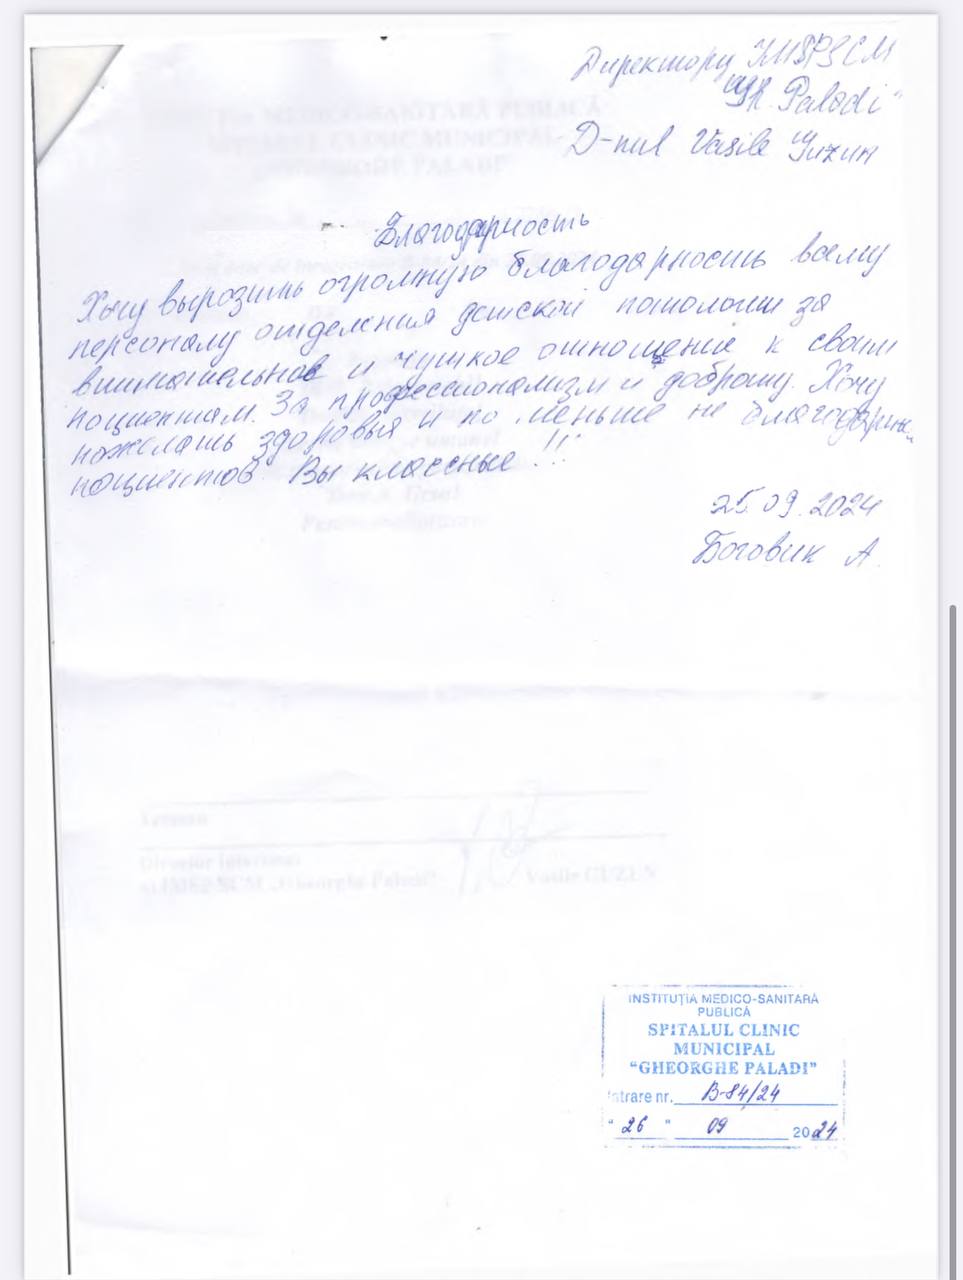 Директору IMSPSCM
"Gh. Paladi"
D-nul Vasile Guzun
Благодарность
Хочу вырозить огромную благодарность всему
персоналу отделения детской потологии за
внимательное и чуткое отношение к своим
поциентам. За профессионализм и доброту. Хочу
пожелать здоровья и по меньше не благодарных
поциентов Вы классные !!!
25.09.2024
Боговик А.
INSTITUŢIA MEDICO-SANITARĂ
PUBLICĂ
SPITALUL CLINIC
MUNICIPAL
"GHEORGHE PALADI"
Intrare nr. B-84/24
"26" 09 2024